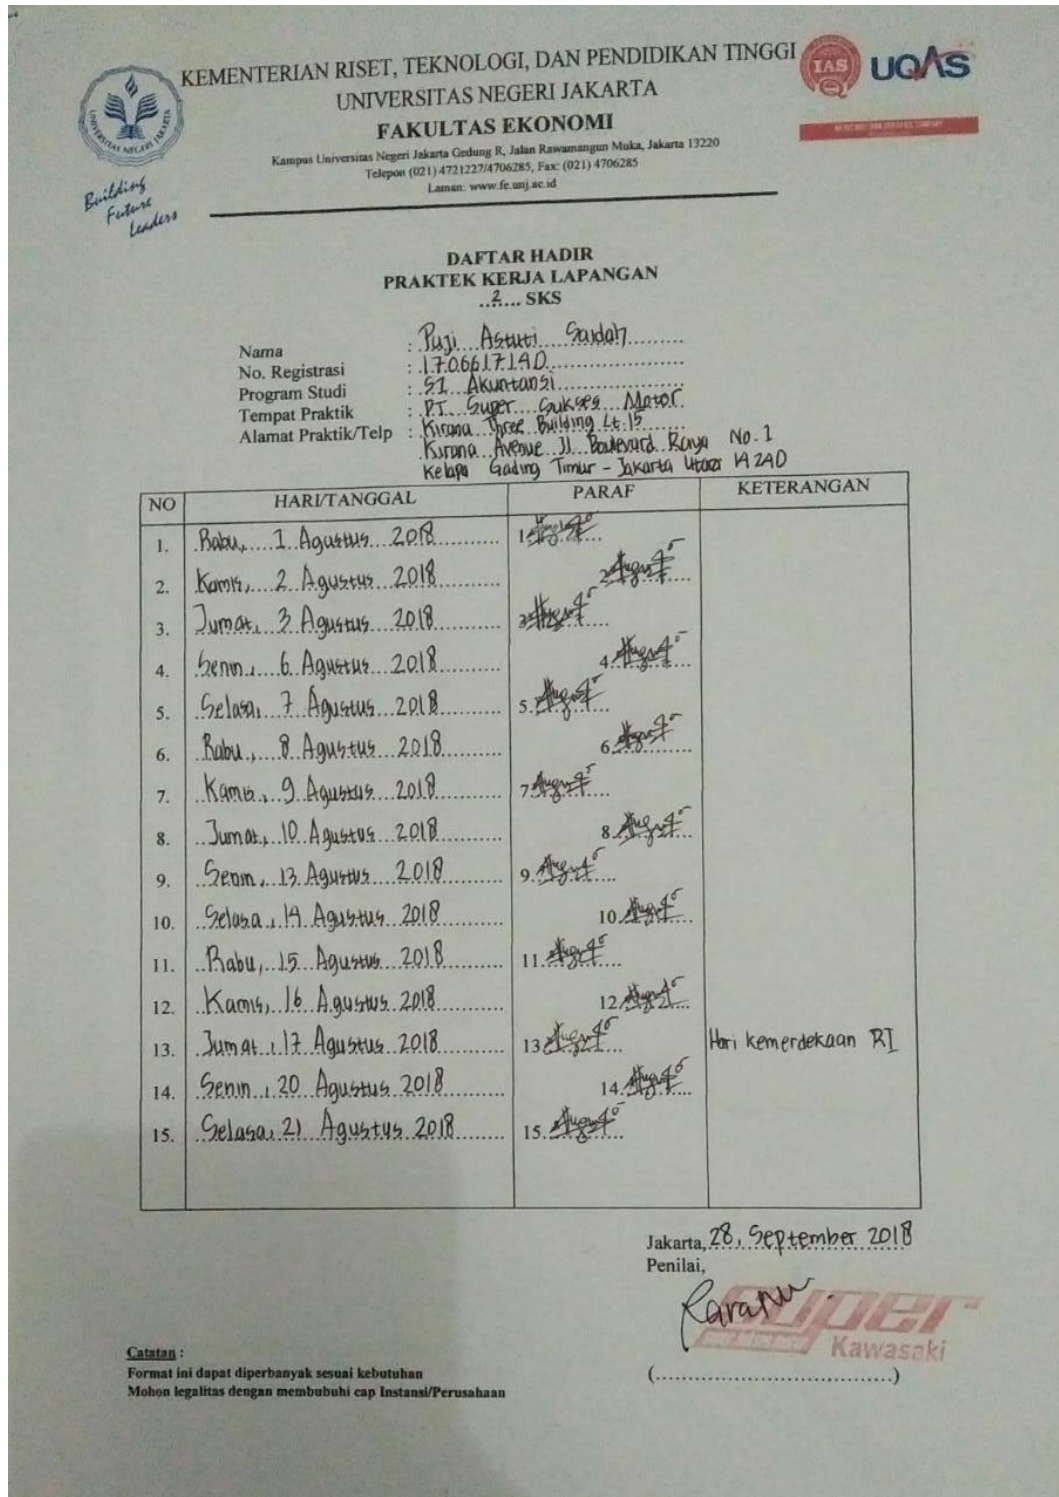 KEMENTERIAN RISET, TEKNOLOGI, DAN PENDIDIKAN TINGGI
UNIVERSITAS NEGERI JAKARTA
FAKULTAS EKONOMI
Kampus Universitas Negeri Jakarta Gedung R, Jalan Rawamangun Muka, Jakarta 13220
Telepon (021) 4721227/4706285, Fax: (021) 4706285
Laman: www.fe.unj.ac.id
UNIVERSITAS NEGERI JAKARTA
Building
Future
Leaders
IAS
UQAS
DAFTAR HADIR
PRAKTEK KERJA LAPANGAN
..2.... SKS
Nama : Puji Astuti Saidah
No. Registrasi : 1706617140
Program Studi : S1 Akuntansi
Tempat Praktik : PT. Super Sukses Motor
Alamat Praktik/Telp : Kirana Three Building Lt. 15
Kirana Avenue Jl. Boulevard Raya No. 1
Kelapa Gading Timur - Jakarta Utara 14240
NO HARI/TANGGAL PARAF KETERANGAN
1. Rabu, 1 Agustus 2018 1.
2. Kamis, 2 Agustus 2018 2.
3. Jumat, 3 Agustus 2018 3.
4. Senin, 6 Agustus 2018 4.
5. Selasa, 7 Agustus 2018 5.
6. Rabu, 8 Agustus 2018 6.
7. Kamis, 9 Agustus 2018 7.
8. Jumat, 10 Agustus 2018 8.
9. Senin, 13 Agustus 2018 9.
10. Selasa, 14 Agustus 2018 10.
11. Rabu, 15 Agustus 2018 11.
12. Kamis, 16 Agustus 2018 12.
13. Jumat, 17 Agustus 2018 13. Hari kemerdekaan RI
14. Senin, 20 Agustus 2018 14.
15. Selasa, 21 Agustus 2018 15.
Jakarta, 28, September 2018
Penilai,
super
Kawasaki
(....................................)
Catatan :
Format ini dapat diperbanyak sesuai kebutuhan
Mohon legalitas dengan membubuhi cap Instansi/Perusahaan